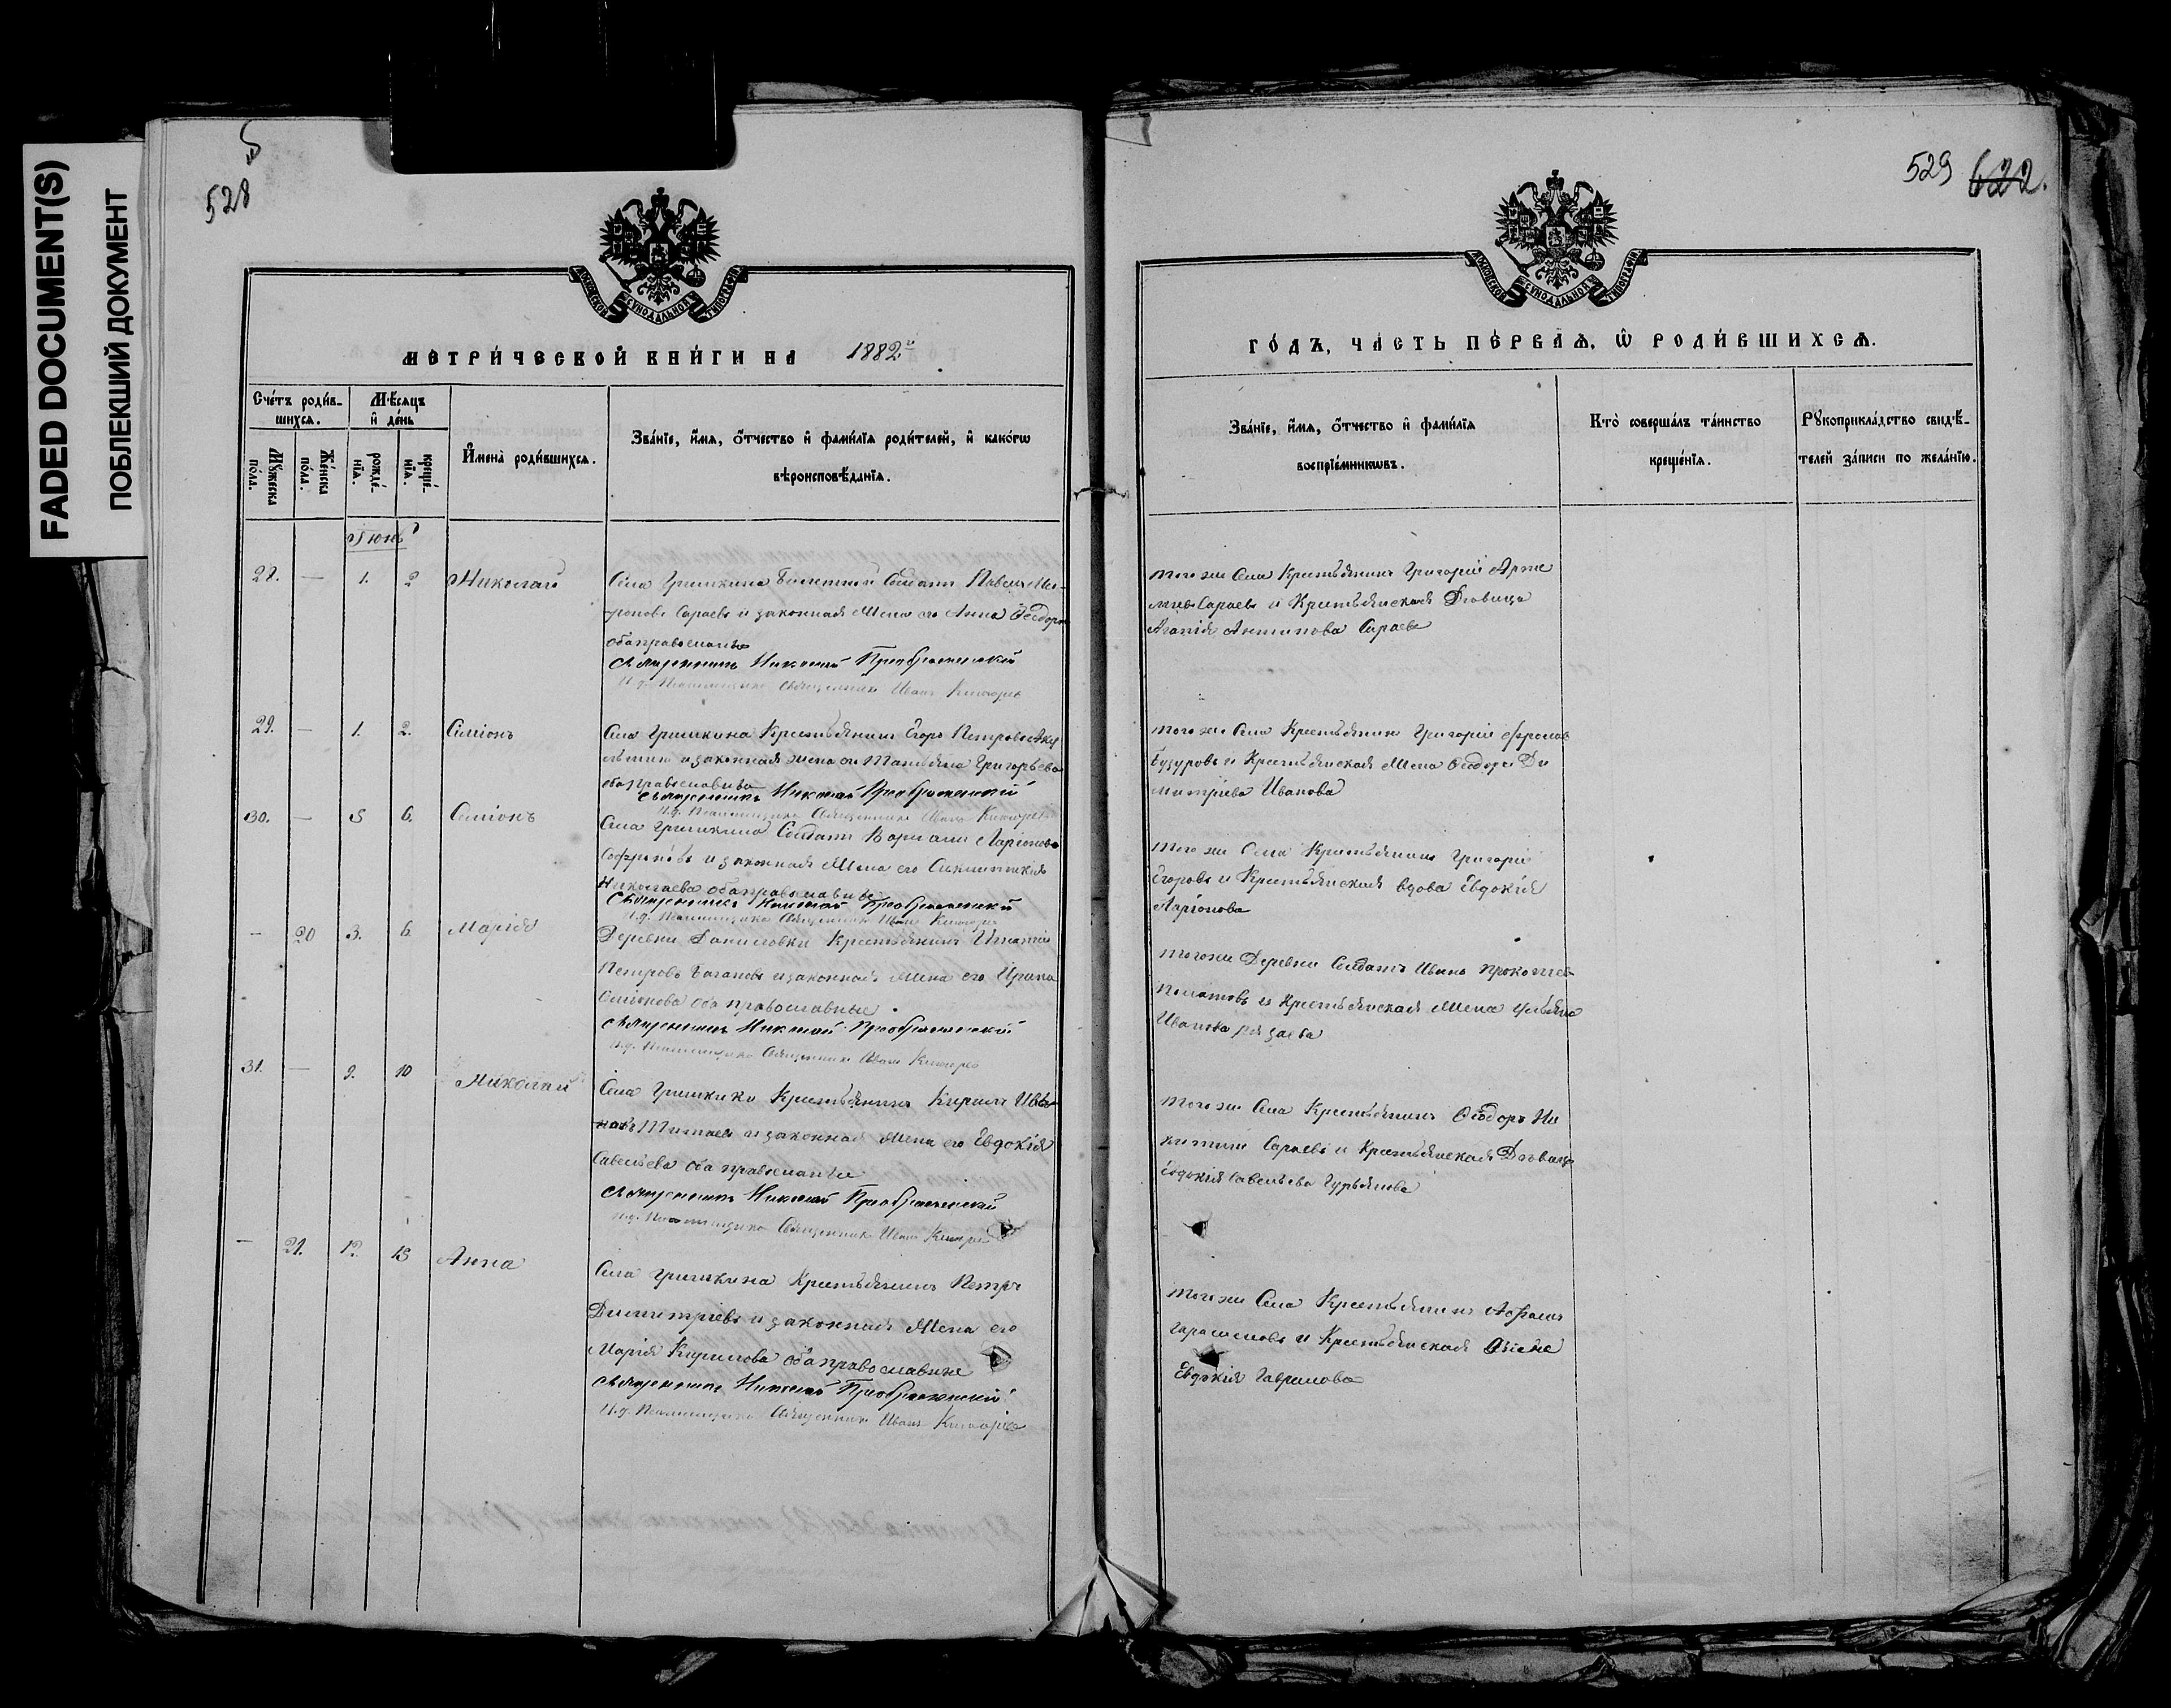 FADED DOCUMENT(S)
ПОБЛЕКШИЙ ДОКУМЕНТ
5
528
МОСКОВСКОЙ СѴНОДАЛЬНОЙ ТИПОГРАФІИ
МЕТРИ́ЧЕСКОЙ КНИ́ГИ НА 1882й
Сче́тъ роди́в-
шихсѧ.
Мꙋ́жеска
по́ла.
Же́нска
по́ла.
Мѣ́сѧцъ
и҆ де́нь
рожде́-
нїѧ.
креще́-
нїѧ.
И҆мена̀ роди́вшихсѧ.
Зва́нїе, и҆́мѧ, ѻ҆́тчество и҆ фами́лїѧ роди́телей, и҆ како́гѡ
вѣроисповѣ́данїѧ.
Іюнь
28. — 1. 2 Николай
Села Гришкина Билетный Солдатъ Павелъ Ми-
роновъ Сараевъ и законная Жена его Анна Ѳеодоро
оба православные
Священникъ Николай Преображенскій
И.д. Псаломщика Священникъ Иванъ
29. — 1. 2. Симіонъ
Села Гришкина Крестьянинъ Егоръ Петровъ
и законная жена его Татьяна Григорьева
оба православные
Священникъ Николай Преображенскій
И.д. Псаломщика Священникъ Иванъ
30. — 5 6. Симіонъ
Села Гришкина Солдатъ Ларіоновъ
Софроновъ и законная Жена его
Николаева оба православные
Священникъ Николай Преображенскій
И.д. Псаломщика Священникъ Иванъ
— 20 3. 6. Марія
Деревни Даниловки Крестьянинъ Игнатій
Петровъ Богановъ и законная Жена его Ирина
Симіонова оба православные.
Священникъ Николай Преображенскій
И.д. Псаломщика Священникъ Иванъ
31. — 9. 10 Николай
Села Гришкина Крестьянинъ Кирилъ Ива-
новъ и законная Жена его Евдокія
Савельева оба православные
Священникъ Николай Преображенскій
И.д. Псаломщика Священникъ Иванъ
— 21. 12. 13 Анна
Села Гришкина Крестьянинъ Петръ
Димитріевъ и законная Жена его
Марія Кирилова оба православные
Священникъ Николай Преображенскій
И.д. Псаломщика Священникъ Иванъ
529 622.
МОСКОВСКОЙ СѴНОДАЛЬНОЙ ТИПОГРАФІИ
ГО́ДЪ, ЧА́СТЬ ПЕ́РВАѦ, Ѽ РОДИ́ВШИХСѦ.
Зва́нїе, и҆́мѧ, ѻ҆́тчество и҆ фами́лїѧ
воспрїе́мникѡвъ.
Кто̀ соверша́лъ та́инство
креще́нїѧ.
Рꙋкоприкла́дство свидѣ́-
телей за́писи по жела́нїю.
Того же Села Крестьянинъ Григорій Арте
мьевъ Сараевъ и Крестьянская Дѣвица
Агапія Антипова Сараева
Того же Села Крестьянинъ Григорій Афронов
и Крестьянская Жена Ѳеодора Ди
митріева Иванова
Того же Села Крестьянинъ Григорій
Егоровъ и Крестьянская вдова Евдокія
Ларіонова
Того же Деревни Солдатъ Иванъ Прокопіев
и Крестьянская Жена Ульяна
Иванова
Того же Села Крестьянинъ Ѳеодоръ Ни
китинъ Сараевъ и Крестьянская Дѣвица
Евдокія Савельева Гурьянова
Того же Села Крестьянинъ
и Крестьянская
Евдокія Гаврилова